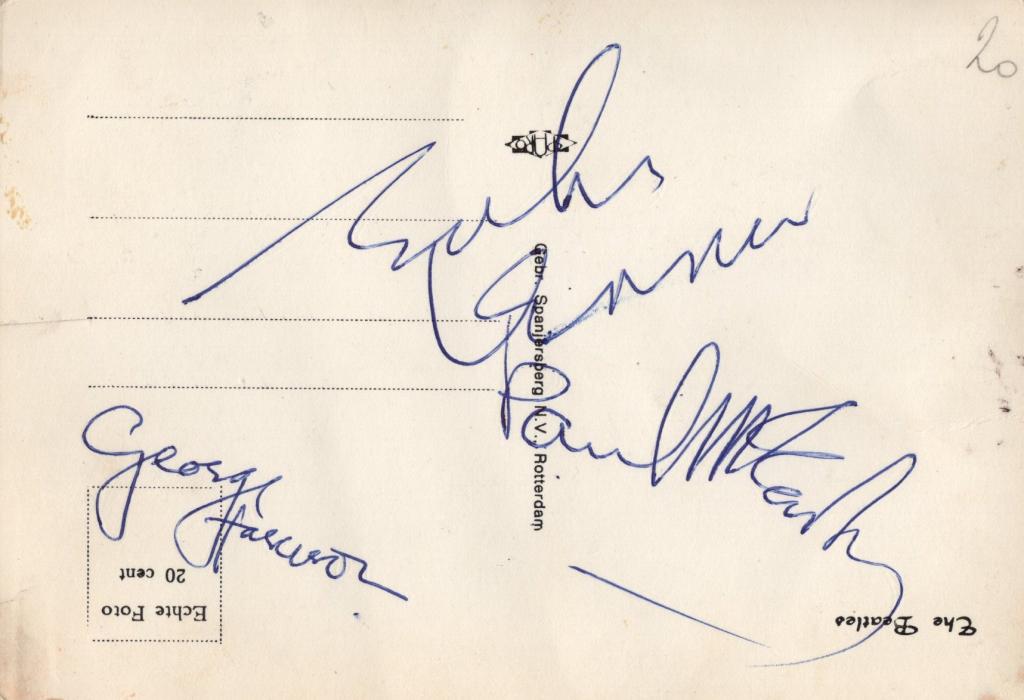 20
Gebr. Spanjersberg N.V., Rotterdam
John
Lennon
Paul McCartney
George
Harrison
Echte Foto
20 cent
The Beatles